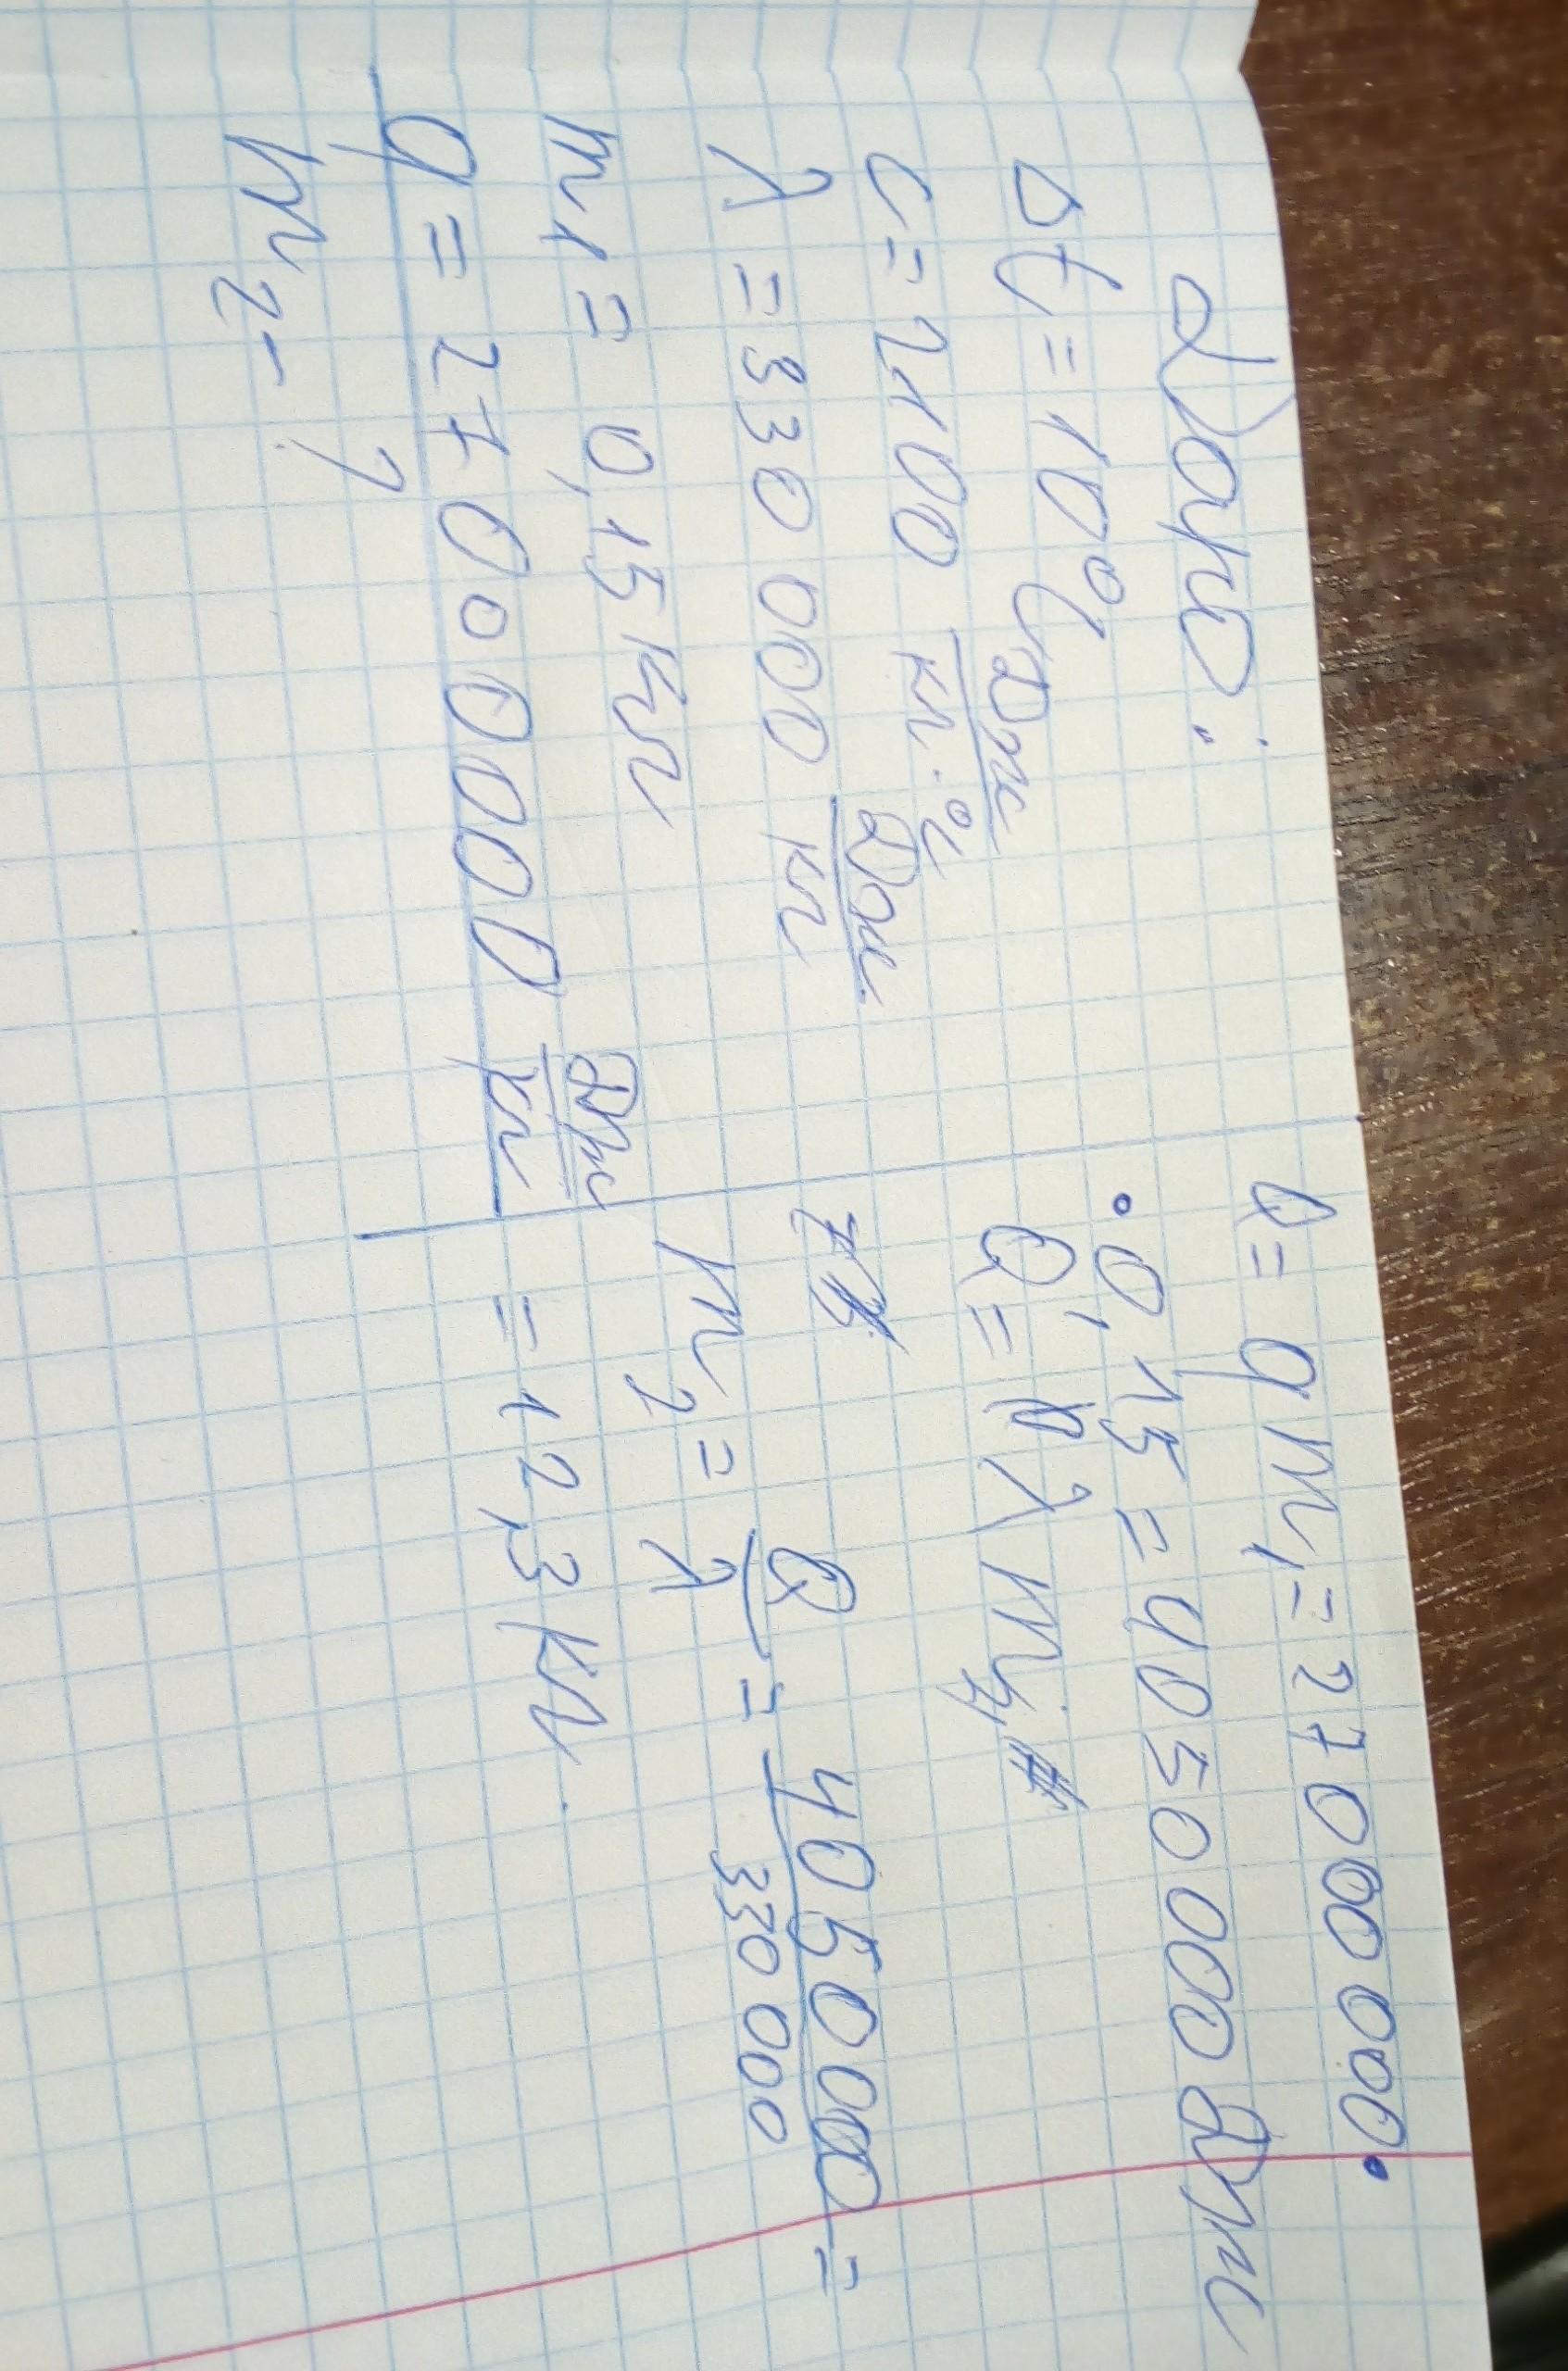 Дано:
Δt = 10°C
c = 2100 Дж/кг·°C
λ = 330 000 Дж/кг
m1 = 0,15 кг
q = 27000000 Дж/кг
m2 - ?
Q = qm1 = 27000000 ·
· 0,15 = 4050000 Дж
Q = λm2
m2 = Q/λ = 4050000/330000 =
= 12,3 кг.